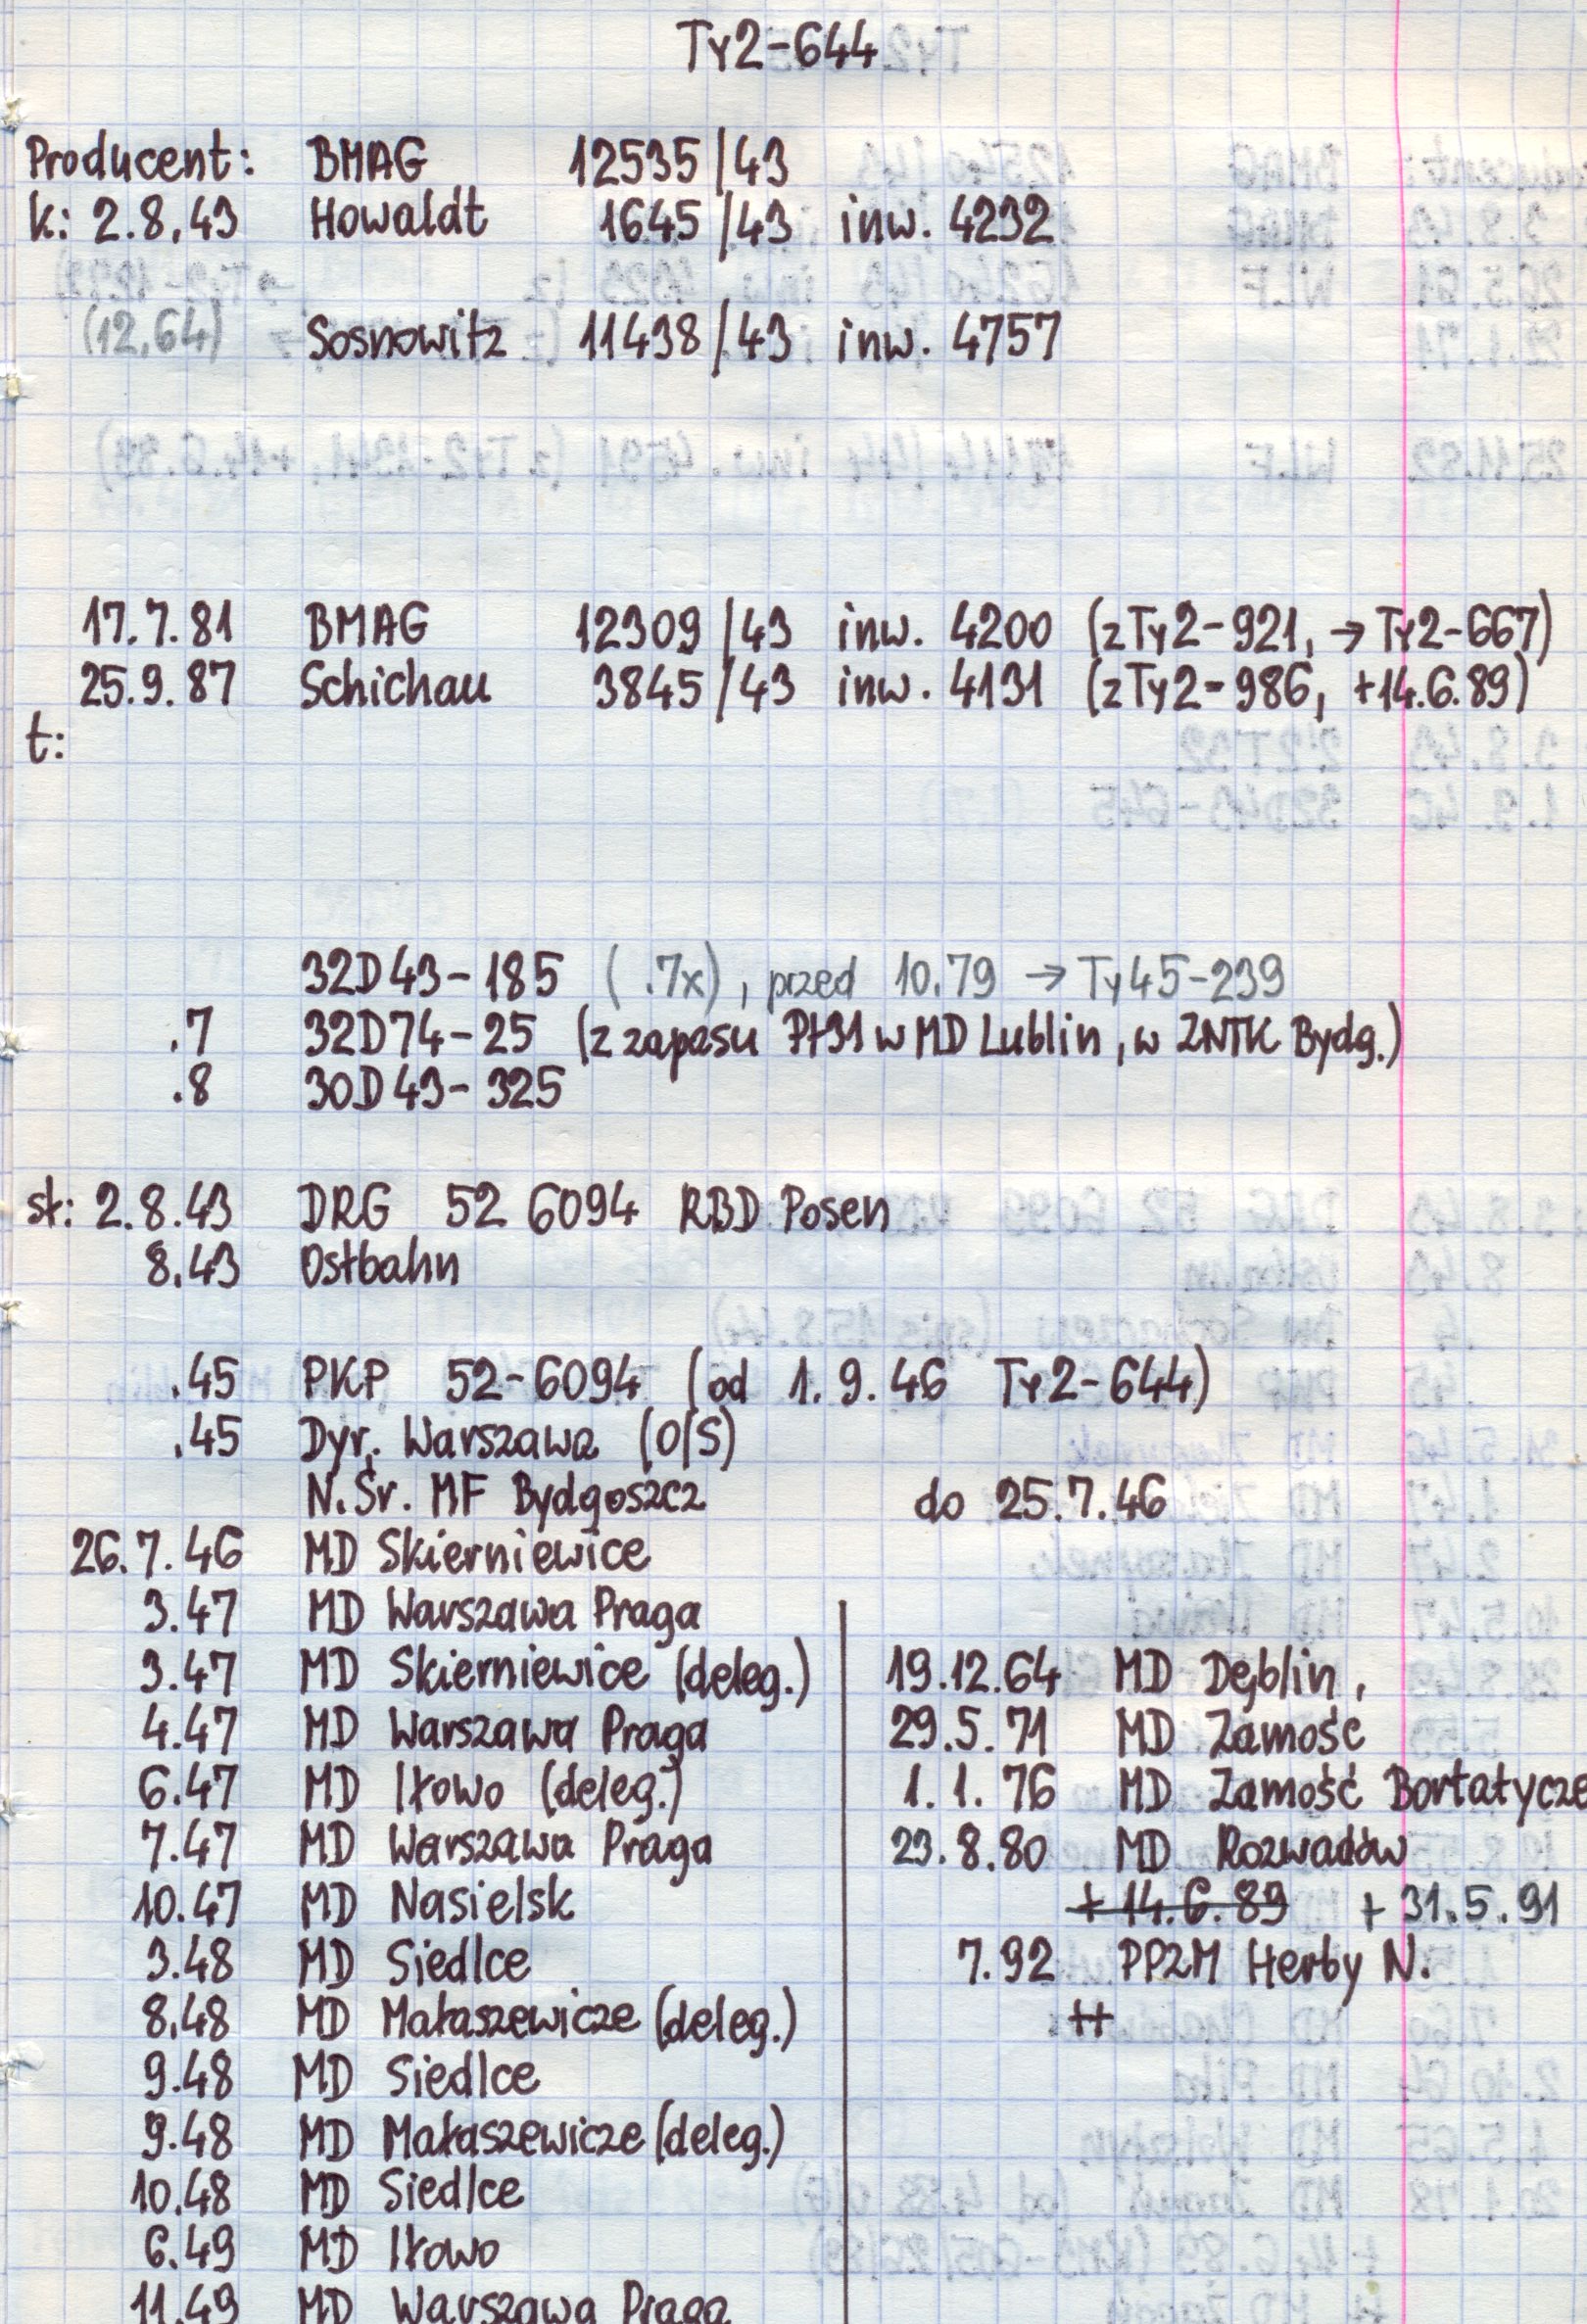 Ty2-644
Producent: BMAG 12535/43
k: 2.8.43 Howaldt 1645/43 inw. 4232
(12.64) Sosnowitz 11438/43 inw. 4757
17.7.81 BMAG 12309/43 inw. 4200 (z Ty2-921, → Ty2-667)
25.9.87 Schichau 3845/43 inw. 4131 (z Ty2-986, +14.6.89)
t:
32D43-185 ( .7x), przed 10.79 → Ty45-239
.7 32D74-25 (z zapasu Pt31 w MD Lublin, w ZNTK Bydg.)
.8 30D43-325
st: 2.8.43 DRG 52 6094 RBD Posen
8.43 Ostbahn
.45 PKP 52-6094 (od 1.9.46 Ty2-644)
.45 Dyr. Warszawa (O/S)
N.Śr. MF Bydgoszcz do 25.7.46
26.7.46 MD Skierniewice
3.47 MD Warszawa Praga
3.47 MD Skierniewice (deleg.)
4.47 MD Warszawa Praga
6.47 MD Iłowo (deleg.)
7.47 MD Warszawa Praga
10.47 MD Nasielsk
3.48 MD Siedlce
8.48 MD Małaszewicze (deleg.)
9.48 MD Siedlce
9.48 MD Małaszewicze (deleg.)
10.48 MD Siedlce
6.49 MD Iłowo
11.49 MD Warszawa Praga
19.12.64 MD Dęblin,
29.5.71 MD Zamość
1.1.76 MD Zamość Bortatycze
23.8.80 MD Rozwadów
+ 14.6.89 + 31.5.91
7.92 PPZM Herby N.
++